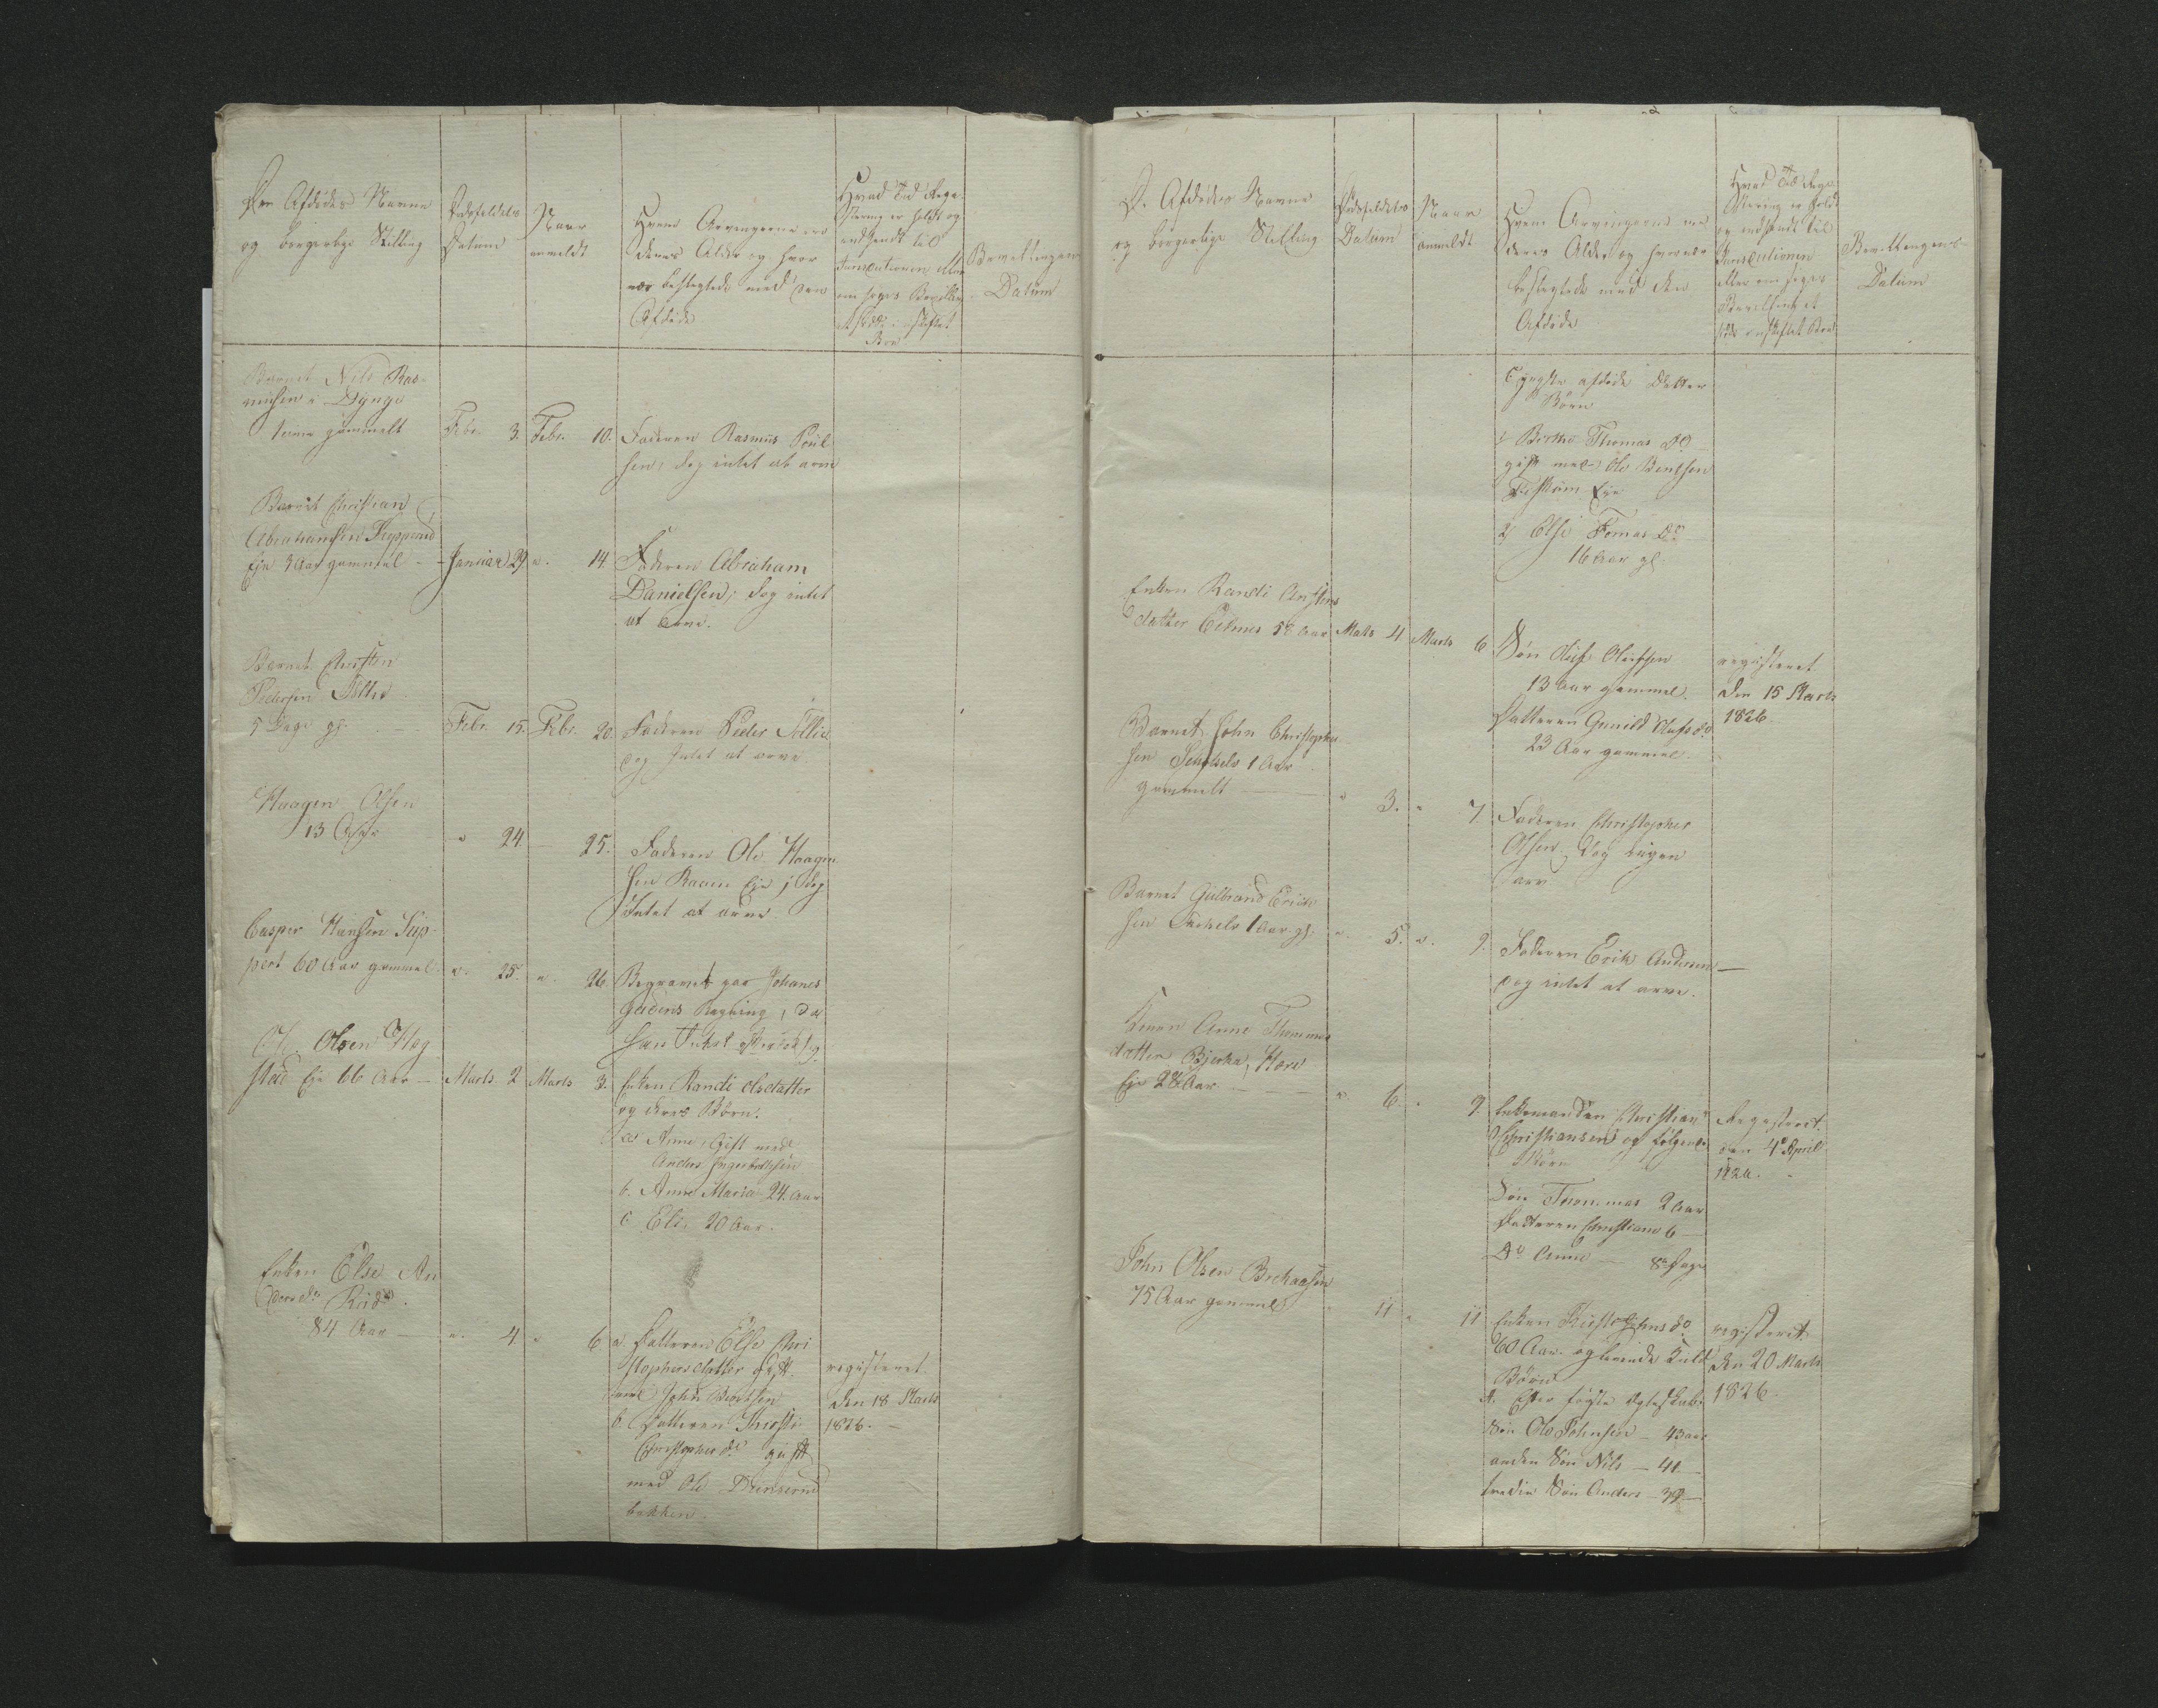 De Afdødes Navne
og borgerlige Stilling
Dødsfaldets
Datum
Naar
anmeldt
Hvem Arvingerne ere
deres Alder og hvor
nær beslegtede med den
Afdøde
Hvad Tid Regi-
stering er holdt og
indsendt til
eller
om søges Bevilling
at sidde i uskiftet
Boe
Bevillingens
Datum
Barnet Nils Ras-
musen
gammelt
Febr. 3. Febr. 10.
Faderen Rasmus Poul-
sen, dog intet at arve
Barnet Christian
Abrahamsen
Eje 3 Aar gammel
Januar 29 " 14
Faderen Abraham
Danielsen; dog intet
at arve.
Barnet Christen
Pedersen
5 Dage gl.
Febr. 15. Febr. 20.
Faderen Peder
dog Intet at arve
Haagen Olsen
13 Aar
" 24 — 25.
Faderen Ole Haagen-
sen Eje; dog
Intet at arve
Casper Hansen
60 Aar gammel
" 25. " 26.
Begravet paa Johanes
Regning, da
han Intet efterlod sig.
Olsen Hog-
stad Eje 66 Aar —
Marts 2 Marts 3.
Enken Randi Olsdatter
og deres Børn.
a Anne, Gift med
Anders
b. Anne Maria 24. Aar
c Else 20 Aar.
Enken Else An-
ders dr.
84 Aar —
" 4 " 6
a. Datteren Else Chri-
stophersdatter gift
med John Berntsen
b. Datteren Kirsti
Christopher dr. gift
med Ole
bakken.
registeret
den 18 Marts
1826. —
De Afdødes Navne
og borgerlige Stilling
Dødsfaldets
Datum
Naar
anmeldt
Hvem Arvingerne ere
deres Alder og hvor nær
beslegtede med den
Afdøde
Hvad Tid Regi-
stering er holdt
og indsendt til
eller om søges
Bevilling at
sidde i uskiftet Boe
Bevillingens
Datum
afdøde Datter
Børn
1 Berthe Thomas Do
gift med Ole Bentsen
Eje
2, Else Tomas Do
16 Aar gl.
Enken Randi
datter 52 Aar
Mats 4 Marts 6
Søn Oluf Olufsen
13 Aar gammel.
Datteren Gunild Olufs do
23 Aar gammel.
registeret
den 15 Marts
1826.
Barnet John Christopher-
sen 1 Aar
gammelt —
" 3. " 7
Faderen Christopher
Olsen, dog ingen
arv
Barnet Gulbrand Erick-
sen 1 Aar gl.
" 5. " 9.
Faderen Erik Andersen —
dog intet at arve.
Konen Anne Thommes-
datter Bjerke,
Eje 28 Aar. —
" 6. " 9.
Enkemanden Christian
Christiansen og følgende
Børn
Søn Thommas 2 Aar
Datteren Christiane 6 —
Do Anne — 8 Dage
Registeret
den 4 April
1826.
John Olsen
75 Aar gammel
" 11 " 11
Enken Kirsti Johns do
60 Aar. og
Børn
A. Efter første Ægteskab:
Søn Ole Johnsen — 43 aar
anden Søn Nils — 41 —
tredie Søn Anders — 39 —
registeret
den 20 Marts
1826.